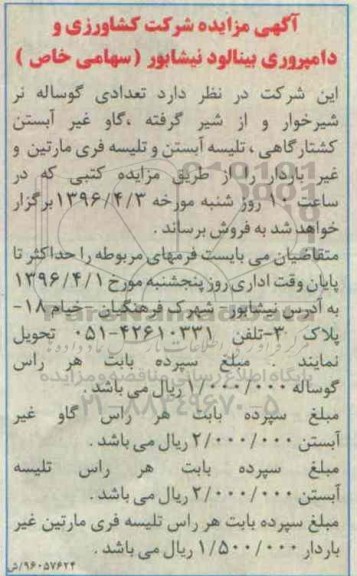 آگهی مزایده شرکت کشاورزی و
دامپروری بینالود نیشابور (سهامی خاص )
این شرکت در نظر دارد تعدادی گوساله نر
شیرخوار و از شیر گرفته ،گاو غیر آبستن
کشتارگاهی ، تلیسه آبستن و تلیسه فری مارتین و
غیر باردار را از طریق مزایده کتبی که در
ساعت ۱۰ روز شنبه مورخه ۱۳۹۶/۴/۳ برگزار
خواهد شد به فروش برساند .
متقاضیان می بایست فرمهای مربوطه را حداکثر تا
پایان وقت اداری روز پنجشنبه مورخ ۱۳۹۶/۴/۱
به آدرس نیشابور - شهرک فرهنگیان - خیام ۱۸-
پلاک ۳-تلفن ۴۲۶۱۰۳۳۱-۰۵۱ تحویل
نمایند . مبلغ سپرده بابت هر راس
گوساله ۱/۰۰۰/۰۰۰ ریال می باشد .
مبلغ سپرده بابت هر راس گاو غیر
آبستن ۲/۰۰۰/۰۰۰ ریال می باشد .
مبلغ سپرده بابت هر راس تلیسه
آبستن ۲/۰۰۰/۰۰۰ ریال می باشد .
مبلغ سپرده بابت هر راس تلیسه فری مارتین غیر
باردار ۱/۵۰۰/۰۰۰ ریال می باشد .
۹۶۰۵۷۶۲۴/ش
پایگاه اطلاع رسانی مناقصه و مزایده
۰۲۱-۸۸۳۴۹۶۷۰-۵